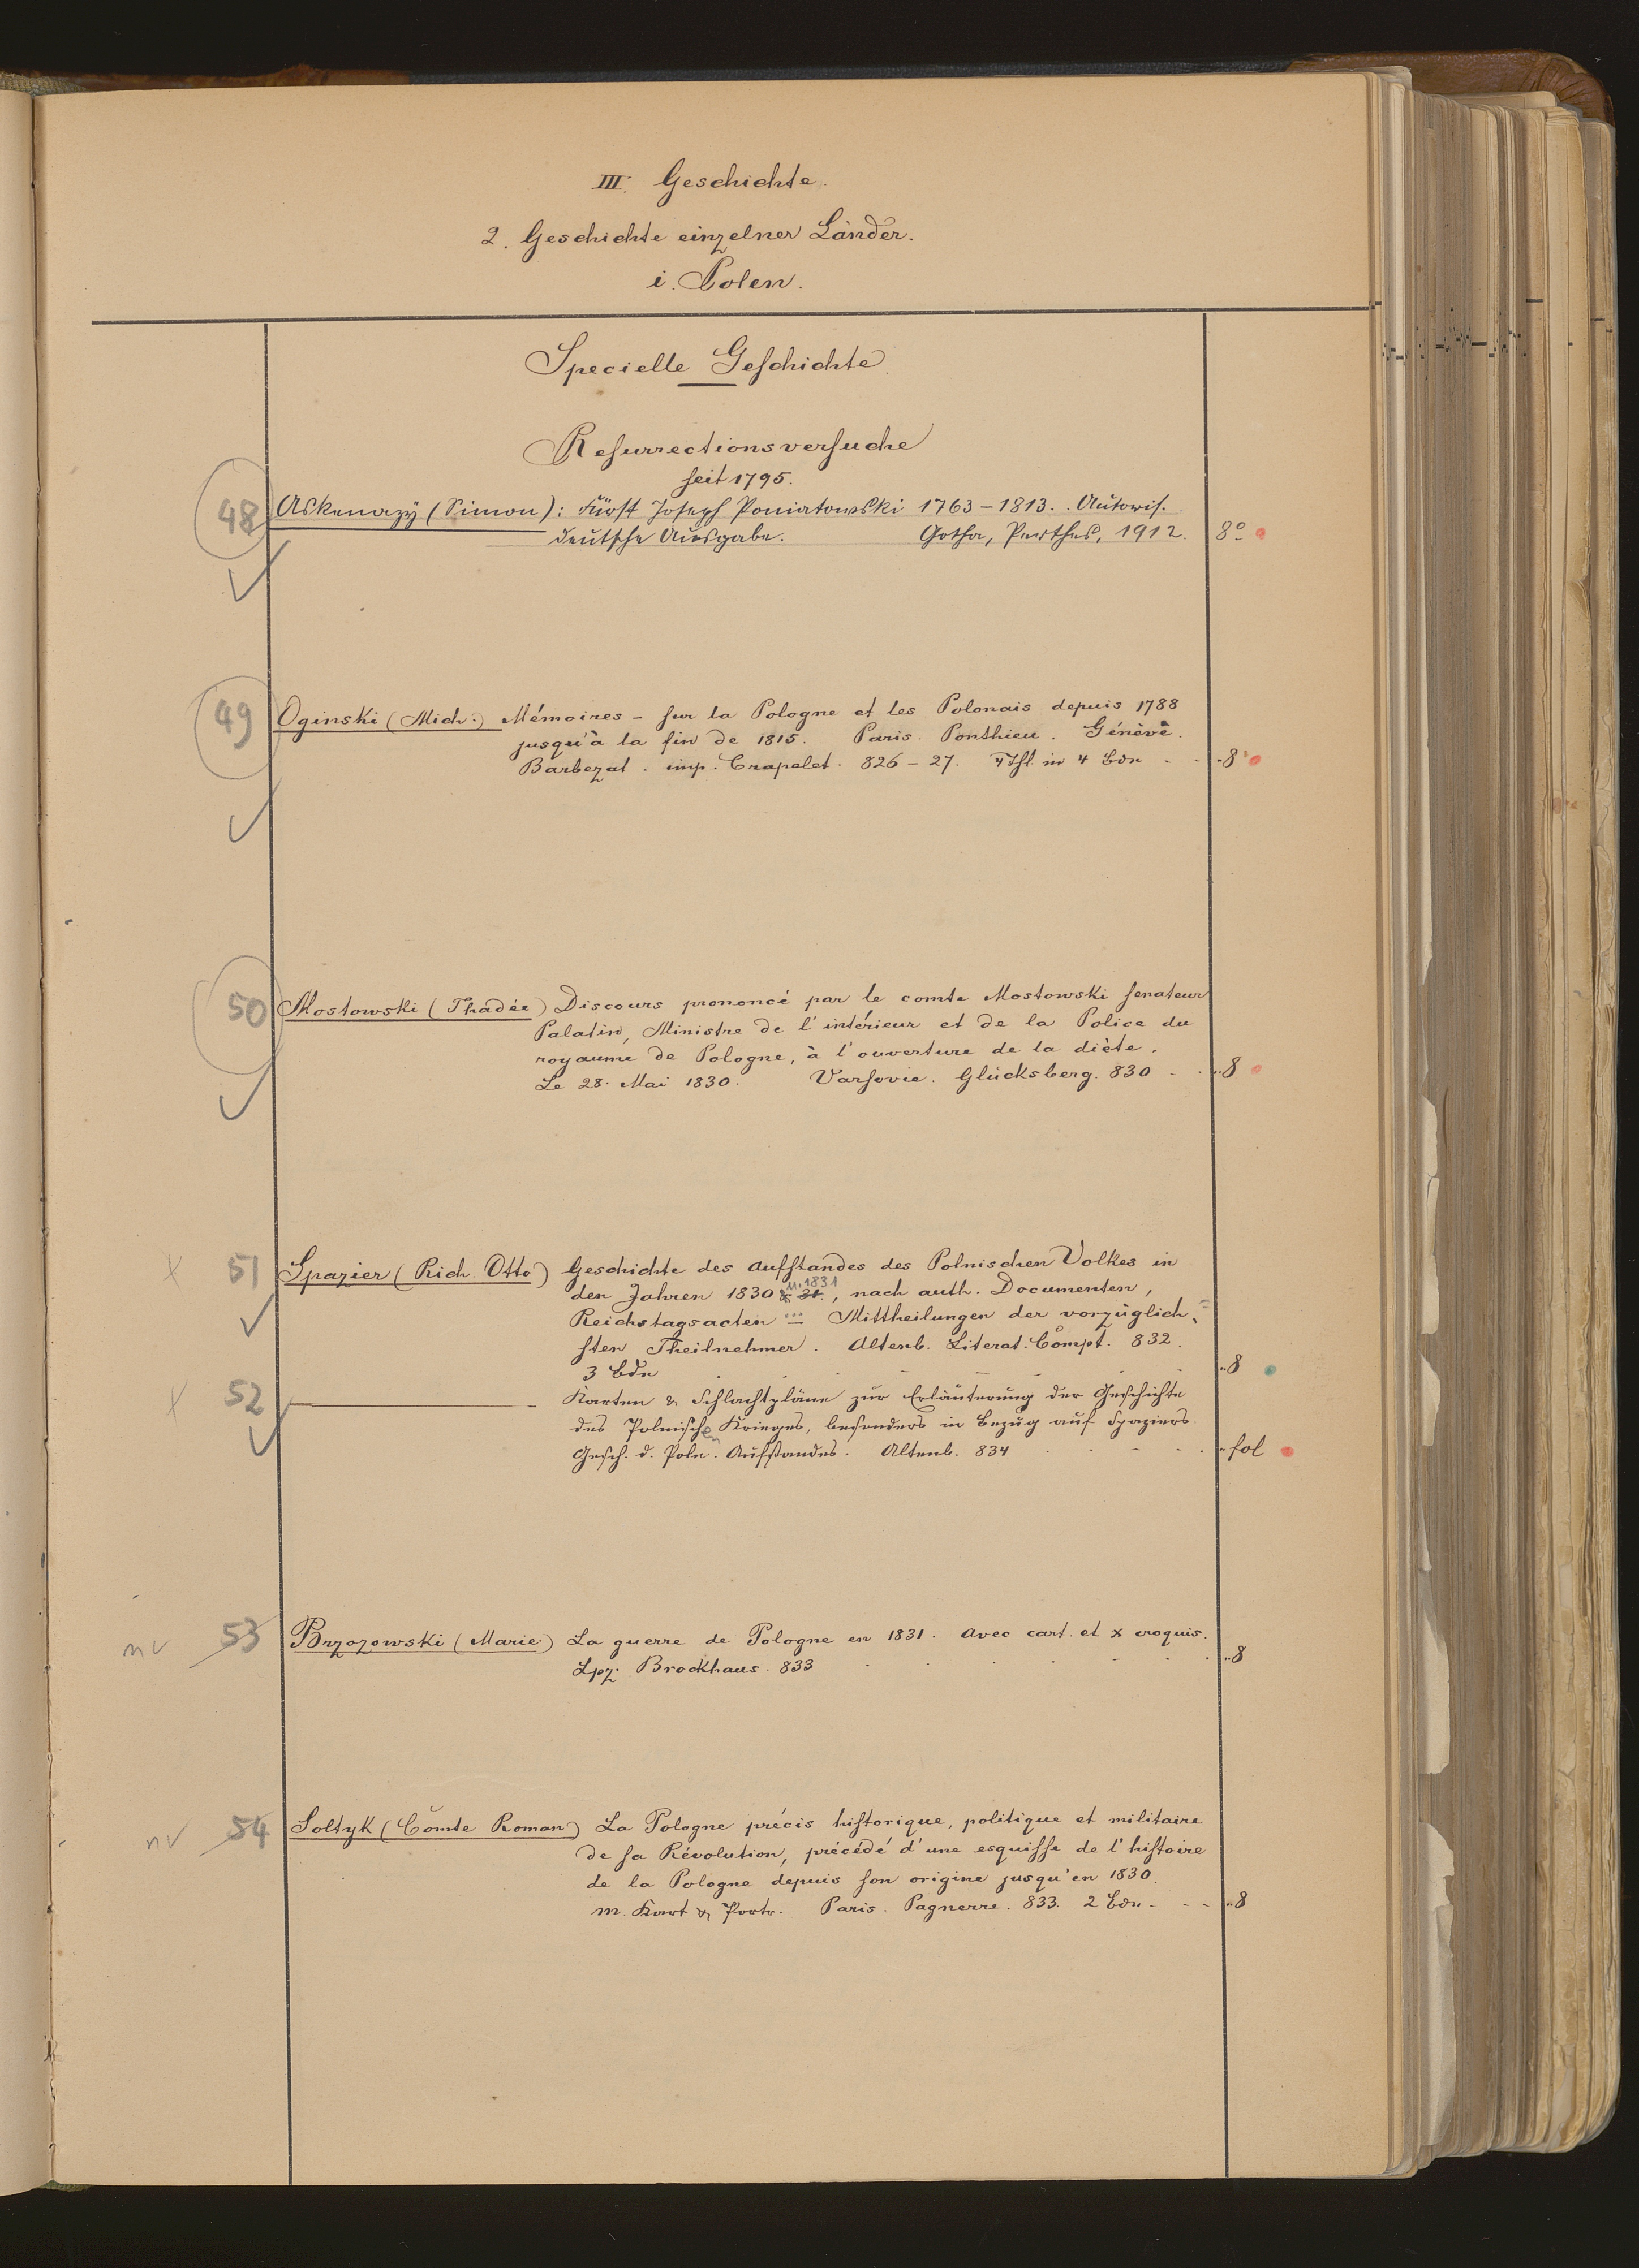 III. Geschichte.
2. Geschichte einzelner Länder.
i. Polen.
Specielle Geschichte
Resurrectionsversuche
seit 1795.
48 Askenazy (Simon): Fürst Joseph Poniatowski 1763-1813. Autoris.
deutsche Ausgabe. Gotha, Perthes, 1912. 8º
49 Oginski (Mich.) Mémoires - sur la Pologne et les Polonais depuis 1788
jusqu'à la fin de 1815. Paris. Ponthieu. Génève.
Barbezat. imp. Crapelet. 826-27. 4 Thl. in 4 Bdn - - 8º
50 Mostowski (Thadée) Discours prononcé par le comte Mostowski senateur
Palatin, Ministre de l'intérieur et de la Police du
royaume de Pologne, à l'ouverture de la diète.
Le 28. Mai 1830. Varsovie. Glücksberg. 830 - . " 8
x 51 Spazier (Rich. Otto) Geschichte des Aufstandes des Polnischen Volkes in
den Jahren 1830 & 31. u. 1831, nach auth. Documenten,
Reichstagsacten ... Mittheilungen der vorzüglich=
sten Theilnehmer. Altenb. Literat. Compt. 832.
3 Bde " 8
x 52 ——— Karten & Schlachtpläne zur Erläuterung der Geschichte
des Polnischen Krieges, besonders in Bezug auf Spaziers
Gesch. d. Poln. Aufstandes. Altenb. 834 " fol
nv 53 Brzozowski (Marie) La guerre de Pologne en 1831. Avec cart. et x croquis.
Lpz. Brockhaus. 833 " 8
nv 54 Soltyk (Comte Roman) La Pologne précis historique, politique et militaire
de sa Révolution, précédé d'une esquisse de l'histoire
de la Pologne depuis son origine jusqu'en 1830.
m. Kart & Portr. Paris. Pagnerre. 833. 2 Bdn - - - " 8